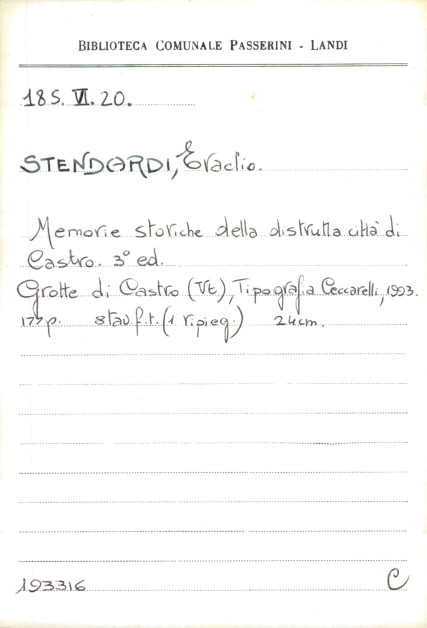 BIBLIOTECA COMUNALE PASSERINI - LANDI
185. VI. 20.
STENDARDI, Eraclio.
Memorie storiche della distrutta città di
Castro. 3° ed.
Grotte di Castro (Vt), Tipografia Ceccarelli, 1993.
177 p. 8 tav. f. t. (1 ripieg.) 24 cm.
193316 C